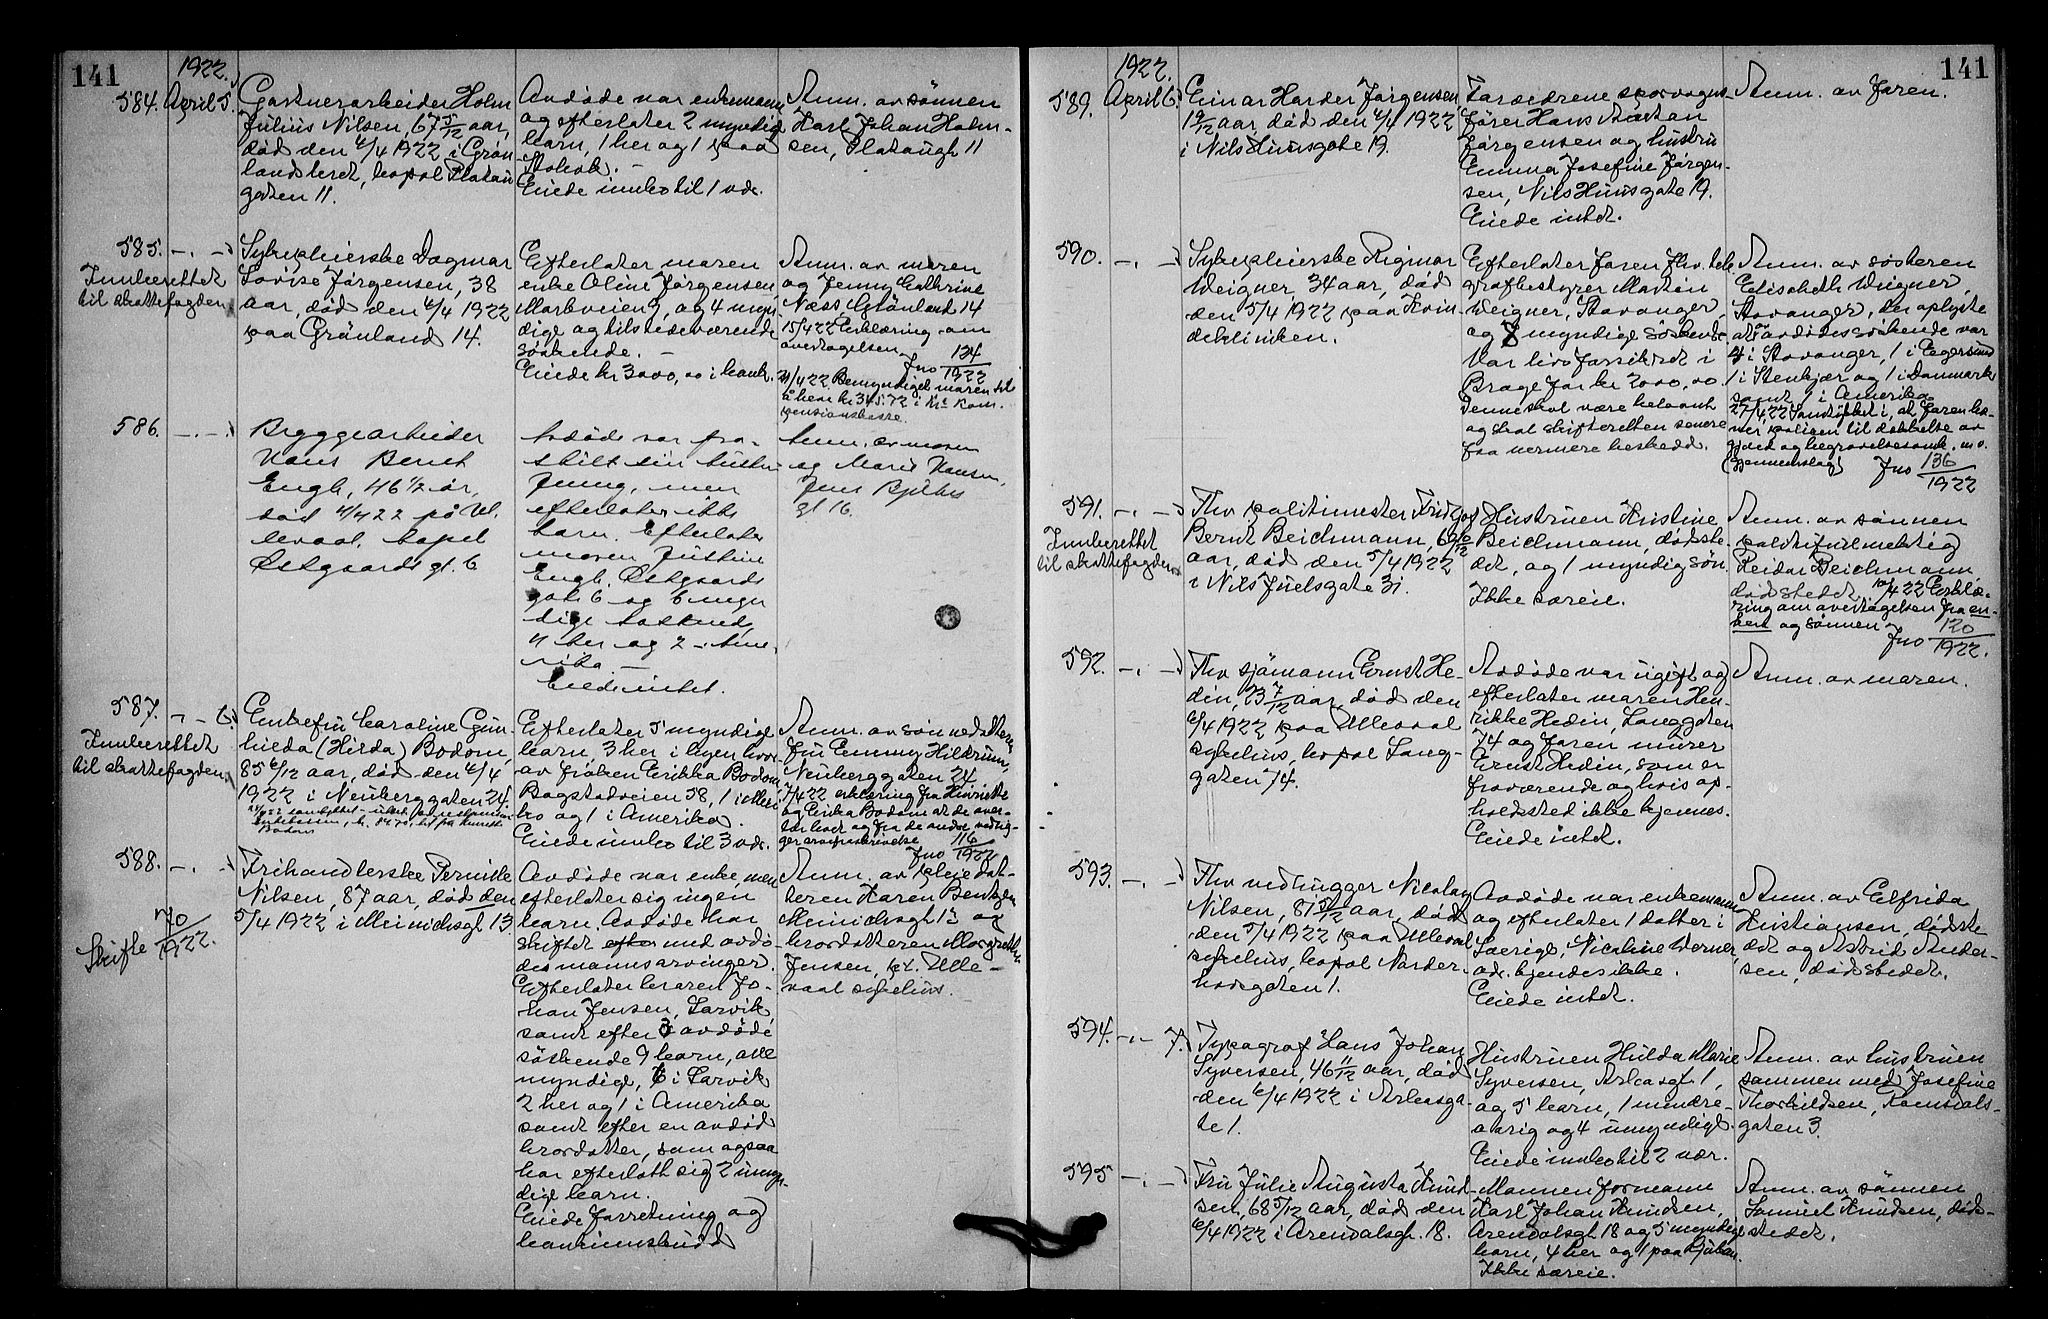 141
1922.
584. April 5.
Gartnerarbeider Holm
Julius Nilsen, 67 5/12 aar,
død den 4/4 1922 i Grøn
landsleret, bopæl Platou
gaten 11.
Avdøde var enkemann
og efterlater 2 myndige
barn, 1 her og 1 paa
Eiede innbo til 1 vær.
Anm. av sønnen
Karl Johan Holm-
sen, Platougt 11
585. -.-
Innberettet
til skattefogden
Sykepleierske Dagmar
Lovise Jørgensen, 38
aar, død den 4/4 1922
paa Grønland 14.
Efterlater moren
enke Oline Jørgensen,
Markveien 9, og 4 myn
dige og tilstedeværende
søskende. -
Eiede kr 3000,00 i bank.
Anm. av moren
og Jenny Cathrine
Næss, Grønland 14
15/4 22 Erklæring om
overtagelsen Jno 134/1922
Bemyndiget moren til
å heve kr 345.72 i
pensionskasse.
586. -.-
Bryggearbeider
Hans Bernt
Engh, 46 1/2 år,
død 4/4 22 på Ul.
levaal, bopæl
Østgaards gt. 6
Avdøde var fra-
skilt sin hustru
men
efterlater ikke
barn. Efterlater
moren Justine
Engh, Østgaards
gate 6 og 6 myn
dige søskend,
4 her og 2 i Ame
rika. -
Eiede intet.
Anm. av moren
og Marie Hansen,
Jens Bjelkes
gt 16.
587. -.- 6.
Innberettet
til skattefogden
Enkefru Caroline Gun
hilda (Hilda) Bodom,
85 6/12 aar, død den 4/4
1922 i Neuberggaten 24.
Bodom
Efterlater 5 myndige
barn, 3 her i byen hvor-
av frøken Erikka Bodom,
Bogstadveien 58, 1 i Mexi
ko og 1 i Amerika.
Eiede innbo til 3 vær.
Anm. av sønnedatteren
fru Emmy Hildrum,
Neuberggaten 24
7/4 22 erklæring fra Henriette
og Erika Bodom at de over-
tar boet og fra de andre vedlig-
ger arvefraskrivelse
Jno 116/1922
588. -.-
Skifte 70/1922.
Frihandlerske Pernille
Nilsen, 87 aar, død den
5/4 1922 i Meinichsgt 13
Avdøde var enke, men
efterlater sig ingen
barn. Avdøde har
skiftet efter med avdø-
des manns arvinger.
Efterlater broren Jo-
han Jensen, Larvik,
samt efter 3 avdøde
søskende 9 barn, alle
myndige, 6 i Larvik
2 her og 1 i Amerika
samt efter en avdød
brordatter, som ogsaa
har efterlatt sig 2 umyn-
dige barn.
Eiede forretning og
Anm. av pleiedat-
teren Karen Bentzen,
Meinichsgt 13 og
brordatteren Margrethe
Jensen, p.t. Ulle-
vaal sykehus.
141
1922.
589. April 6.
Einar Harder Jørgensen,
1 9/12 aar, død den 4/4 1922
i Nils Huusgate 19.
Forældrene sporvogns-
fører Hans Kristian
Jørgensen og hustru
Emma Josefine Jørgen-
sen, Nils Huusgate 19.
Eiede intet.
Anm. av faren.
590. -.-
Sykepleierske Rigmor
Weigner 34 aar, død
den 5/4 1922 paa Kvin-
deklinikken.
Efterlater faren fhv. tele
grafbestyrer Morten
Weigner, Stavanger,
og 8 myndige søskende
Var livsforsikret i
Brage for kr 2000,00.
Denne skal være belaant
og skal skifteretten senere
faa nærmere beskedd.
Anm. av søsteren
Elisabeth Weigner,
Stavanger, der oplyste
at av avdødes søskende var
4 i Stavanger, 1 i Egersund
1 i Stenkjær og 1 i Danmark
samt 1 i Amerika
27/4 22 Samtykket i, at faren he-
ver polisen til dækkelse av
gjæld og begravelsesomk. m.v.
(Gjennemslag) Jno 136/1922
591. -.-
Innberettet
til skattefogden
Fhv politimester Fridtjof
Bernt Beichmann, 69 10/12
aar, død den 5/4 1922
i Nils Juelsgate 31.
Hustruen Kristine
Beichmann, dødste-
det, og 1 myndig søn
Ikke særeie.
Anm. av sønnen
politifullmektig
Reidar Beichmann,
dødsstedet. 10/4 22 Erklæ-
ring om overtagelsen fra en-
ken og sønnen Jno 120/1922.
592. -.-
Fhv sjømann Ernst He-
din, 23 7/12 aar, død den
6/4 1922 paa Ullevaal
sykehus, bopæl Lang-
gaten 74.
Avdøde var ugift og
efterlater moren Hen-
rikke Hedin, Langgaten
74 og faren murer
Ernst Hedin, som er
fraværende og hvis op-
holdssted ikke kjennes.
Eiede intet.
Anm. av moren.
593. -.-
Fhv vedhugger Nicolay
Nilsen, 81 5/12 aar, død
den 5/4 1922 paa Ullevaal
sykehus, bopæl Norder-
hovsgaten 1.
Avdøde var enkemann
og efterlater 1 datter i
Sverige, Nicoline Werner,
adr. kjendes ikke.
Eiede intet.
Anm. av Elfrida
Kristiansen, dødste
det og Astrid Ander-
sen, dødsstedet.
594. -.- 7.
Typograf Hans Johan
Syversen, 46 11/12 aar, død
den 6/4 1922 i Arbosga-
te 1.
Hustruen Hulda Marie
Syversen, Arbosgt 1,
og 5 barn, 1 mindre-
aarig og 4 umyndige.
Eiede innbo til 2 vær.
Anm. av hustruen
sammen med Josefine
Thorkildsen, Romsdals-
gaten 3.
595 -.-
Fru Julie Augusta Knud
sen, 68 5/12 aar, død den
6/4 1922 i Arendalsgt. 18.
Mannen formann
Karl Johan Knudsen,
Arendalsgt 18 og 5 myndige
barn, 4 her og 1 paa Rjukan.
Ikke særeie.
Anm. av sønnen
Samuel Knudsen, døds-
stedet.